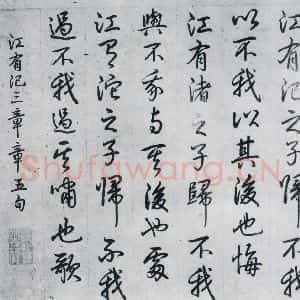 江有汜之子歸不我
以不我以其後也悔
江有渚之子歸不我
與不我与其後也處
江有沱之子歸不我
過不我過其嘯也歌
江有汜三章章五句
Shufawang.CN